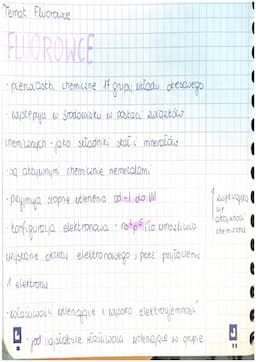 Temat: Fluorowce
FLUOROWCE
- pierwiastki chemiczne 17 grupy układu okresowego
- występują w środowisku w postaci związków
chemicznych - jako składniki skał i minerałów
- są aktywnymi chemicznie niemetalami
- przyjmują stopnie utlenienia od -I do VII
- konfiguracja elektronowa - ns²p⁵ co umożliwia
uzyskanie oktetu elektronowego, przez przyłączenie
1 elektronu
- właściwości utleniające i wysoko elektroujemność
- jod najsłabsze właściwości utleniające w grupie
↑ zwiększająca
się
aktywność
chemiczna